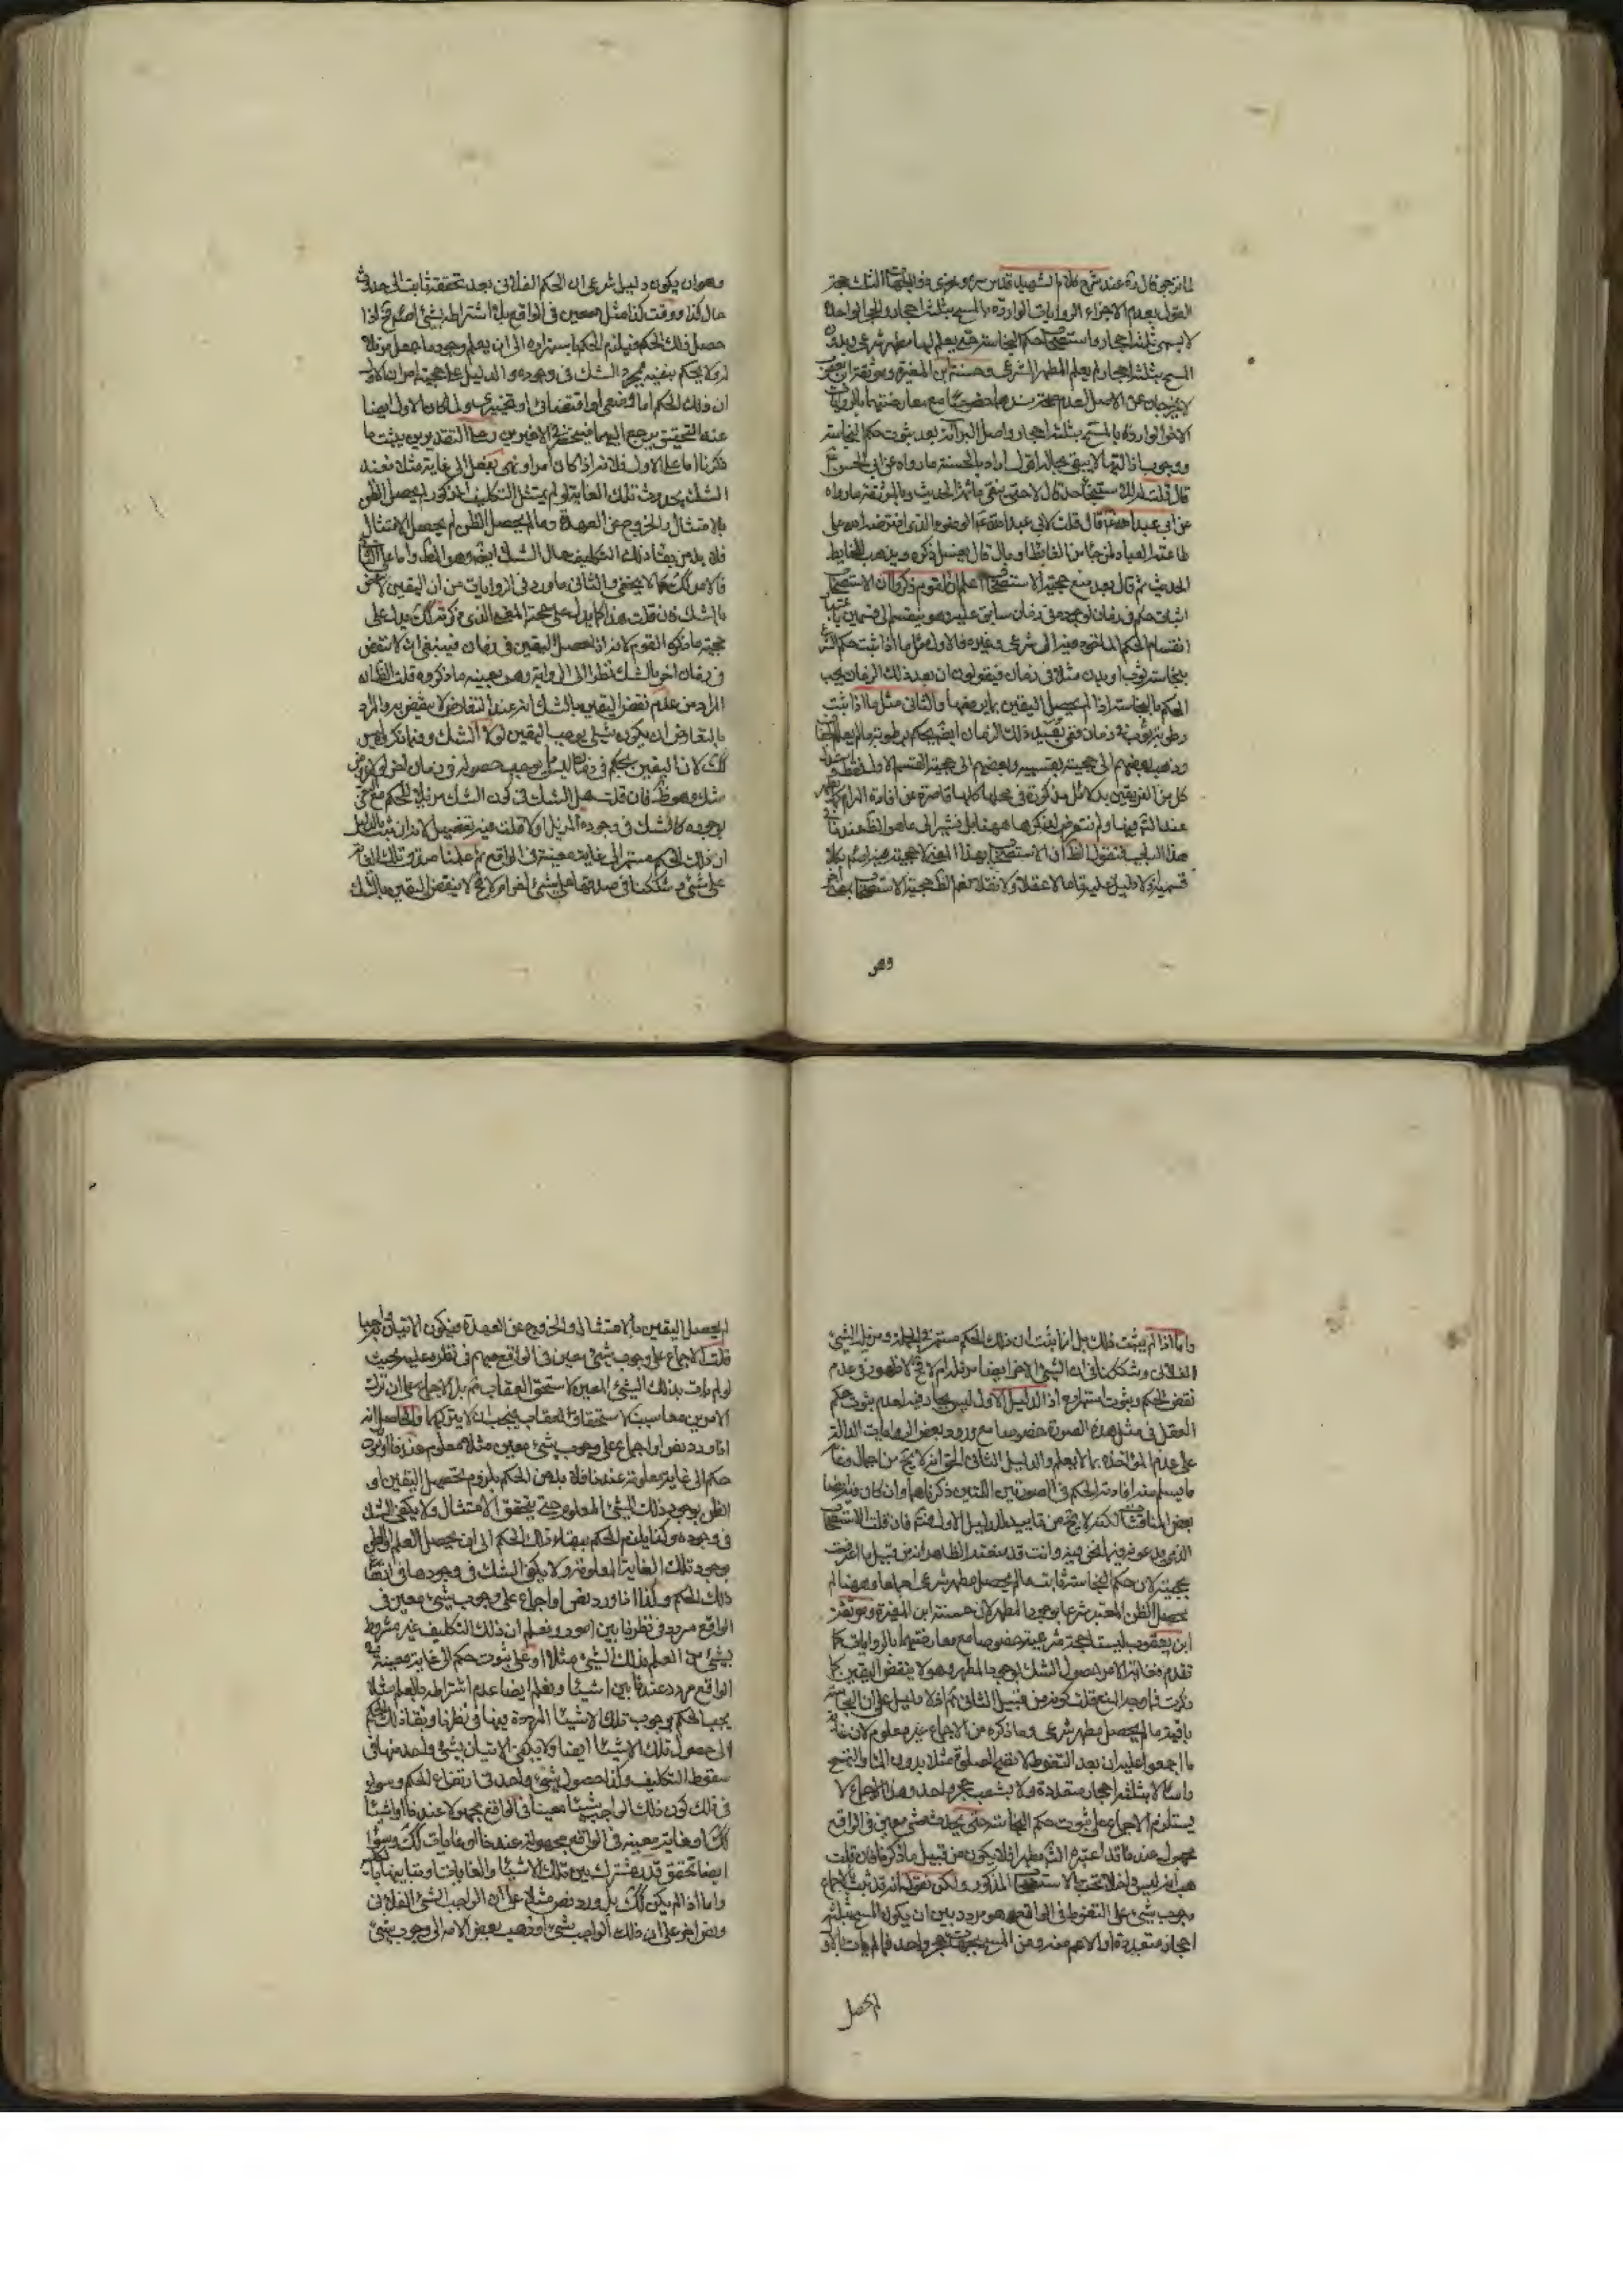 القول بعدم الاجزاء الروايات الواردة بالمسح بثلثة احجار والحجر الواحد
لا يسمى بثلثة احجار واستصحاب حكم النجاسة حتى يعلم لها مطهر شرعي وبدون
المسح بثلثة احجار لم يعلم المطهر الشرعي وحسنة ابن المغيرة وموثقة ابن يعقوب
لا يخرجان عن الاصل لعدم صحة سندهما خصوصا مع معارضتهما بالروايات
الاخر الواردة بالمسح بثلثة احجار واصل البراءة بعد ثبوت حكم النجاسة
ووجوب ازالتها لا يبقى بحاله اقول اراد بالحسنة ما رواه عن ابى الحسن ع
قال قلت له للاستنجاء حد قال لا حتى ينقى ما ثمة الحديث وبالموثقة ما رواه
عن ابى عبد الله ع قال قلت لابى عبد الله ع الوضوء الذى افترضه الله على
العباد لمن جاء من الغائط او بال قال يغسل ذكره ويذهب الغايط
الحديث ثم قال بعد منع حجية الاستصحاب اعلم ان القوم ذكروا ان الاستصحاب
اثبات حكم فى زمان لوجوده فى زمان سابق عليه وهو ينقسم الى قسمين باعتبار
انقسام الحكم الماخوذ فيه الى شرعى وغيره فالاول مثل ما اذا ثبت حكم الشرع
بنجاسة ثوب او بدن مثلا فى زمان فيقولون ان بعد ذلك الزمان يجب
الحكم بالنجاسة اذا لم يحصل اليقين بما يرفعها والثانى مثل ما اذا ثبت
رطوبة ثوب فى زمان ففى بعد ذلك الزمان ايضا يحكم برطوبته ما لم يعلم الجفاف
وذهب بعضهم الى حجيته بقسميه وبعضهم الى حجية القسم الاول فقط واستدل
كل من الفريقين بدلائل مذكورة فى محلها كلها قاصرة عن افادة المرام كما يظهر
عند التدبر فيها ولم نتعرض لذكرها ههنا بل نشير الى ما هو الظاهر عندنا فى
هذا الباب فنقول الظاهر ان الاستصحاب بهذا المعنى لا حجية فيه اصلا بكلا
قسميه اذ لا دليل عليه تاما لا عقلا ولا نقلا نعم الظاهر حجية الاستصحاب بمعنى اخر
وهو
وهو ان يكون دليل شرعى ان الحكم الفلانى بعد تحققه ثابت الى حدوث
حال كذا او وقت كذا مثلا معين فى الواقع بلا اشتراطه بشئ اصلا فح اذا
حصل ذلك الحكم فيلزم الحكم باستمراره الى ان يعلم وجود ما جعل مزيلا
له ولا يحكم بنفيه بمجرد الشك فى وجوده والدليل على حجيته امران الاول
ان ذلك الحكم اما وضعى او اقتضائى او تخييرى ولما كان الاول ايضا
عند التحقيق يرجع اليهما فينحصر فى الاخيرين وعلى التقديرين يثبت ما
ذكرنا اما على الاول فلانه اذا كان امرا او نهيا بفعل الى غاية مثلا فعند
الشك بحدوث تلك الغاية لو لم يمتثل التكليف المذكور لم يحصل الظن
بالامتثال والخروج عن العهدة وما لم يحصل الظن لم يحصل الامتثال
فلا بد من بقاء ذلك التكليف حال الشك ايضا وهو المط واما على الثانى
فالامر كك كما لا يخفى والثانى ما ورد فى الروايات من ان اليقين لا ينقض
بالشك فان قلت هذا كما يدل على حجية المعنى الذى ذكرته كك يدل على
حجية ما ذكره القوم لانه اذا حصل اليقين فى زمان فينبغى ان لا ينقض
فى زمان اخر بالشك نظرا الى الرواية وهو بعينه ما ذكروه قلت الظاهر ان
المراد من عدم نقض اليقين بالشك انه عند التعارض لا ينقض به والمراد
بالتعارض ان يكون شئ يوجب اليقين لولا الشك وفيما ذكروه ليس
كك لان اليقين بحكم فى زمان ليس مما يوجب حصوله فى زمان اخر لولا عروض
شك وهو ظ فان قلت هل الشك فى كون الشئ مزيلا للحكم مع
بوجوده كالشك فى وجود المزيل او لا قلت فيه تفصيل لانه ان ثبت بالدليل
ان ذلك الحكم مستمر الى غاية معينة فى الواقع ثم علمنا صدق تلك الغاية
على شئ وشككنا فى صدقها على شئ اخر ام لا فح لا ينقض اليقين بالشك
واما اذا لم يثبت ذلك بل انما ثبت ان ذلك الحكم مستمر فى الجملة ومزيله الشئ
الفلانى وشككنا فى ان الشئ الاخر ايضا مزيله ام لا فح لا ظهور فى عدم
نقض الحكم وثبوت استمراره اذ الدليل الاول ليس بجار فيه لعدم ثبوت حكم
العقل فى مثل هذه الصورة خصوصا مع ورود بعض الروايات الدالة
على عدم المؤاخذة بما لا يعلم والدليل الثانى الحق انه لا يخ من اجمال وغاية
ما يسلم منه افادته الحكم فى الصورتين اللتين ذكرناهما وان كان فيه ايضا
بعض المناقشات لكنه لا يخ من تاييد للدليل الاول فتم فان قلت الاستصحاب
الذى يدعونه فيما نحن فيه وانت قد منعته الظاهر انه من قبيل ما اعترفت
بحجيته لان حكم النجاسة ثابت ما لم يحصل مطهر شرعى اجماعا وههنا لم
يحصل الظن المعتبر شرعا بوجود المطهر لان حسنة ابن المغيرة وموثقة
ابن يعقوب ليستا حجة شرعية خصوصا مع معارضتهما بالروايات كما
تقدم فغاية الامر حصول الشك بوجود المطهر وهو لا ينقض اليقين كما
ذكرت فما وجه المنع قلت كونه من قبيل الثانى ثم اذ لا دليل على ان النجاسة
باقية ما لم يحصل مطهر شرعى وما ذكره من الاجماع غير معلوم لان غاية
ما اجمعوا عليه ان بعد التغوط لا تصح الصلوة مثلا بدون الماء والتمسح
راسا لا بثلثة احجار متعددة ولا بشعب حجر واحد وهذا الاجماع لا
يستلزم الاجماع على ثبوت حكم النجاسة حتى يحدث شئ معين فى الواقع
مجهول عندنا قد اعتبره الش مطهرا فلا يكون من قبيل ما ذكرنا فان قلت
هب انه ليس داخلا تحت الاستصحاب المذكور ولكن نقول انه قد ثبت بالاجماع
وجوب شئ على التغوط فى الواقع وهو مردد بين ان يكون المسح بثلثة
احجار متعددة او الاعم منه ومن المسح بجهات حجر واحد فما لم يات بالاول
لم يحصل
لم يحصل اليقين بالامتثال والخروج عن العهدة فيكون الاتيان به واجبا
قلت الاجماع على وجوب شئ معين فى الواقع مبهم فى نظره عليه بحيث
لو لم يات بذلك الشئ المعين لاستحق العقاب مم بل الاجماع على ان ترك
الامرين معا سبب لاستحقاق العقاب فيجب ان لا يتركهما والحاصل انه
اذا ورد نص او اجماع على وجوب شئ معين مثلا معلوم عندنا او ثبوت
حكم الى غاية معلومة عندنا فلا بد من الحكم بلزوم تحصيل اليقين او
الظن بوجود ذلك الشئ المعلوم حتى يتحقق الامتثال ولا يكفى الشك
فى وجوده وكذا يلزم الحكم ببقاء ذلك الحكم الى ان يحصل العلم او الظن
بوجود تلك الغاية المعلومة ولا يكفى الشك فى وجودها فى ارتفاع
ذلك الحكم وكذا اذا ورد نص او اجماع على وجوب شئ معين فى
الواقع مردد فى نظرنا بين امور ويعلم ان ذلك التكليف غير مشروط
بشئ من العلم بذلك الشئ مثلا او على ثبوت حكم الى غاية معينة فى
الواقع مردد عندنا بين اشياء ويعلم ايضا عدم اشتراطه بالعلم مثلا
يجب الحكم بوجوب تلك الاشياء المرددة فيها فى نظرنا وبقاء ذلك الحكم
الى حصول تلك الاشياء ايضا ولا يكفى الاتيان بشئ واحد منها فى
سقوط التكليف وكذا حصول شئ واحد فى ارتفاع الحكم وسواء
فى ذلك كون ذلك الواجب شيئا معينا فى الواقع مجهولا عندنا او اشياء
كك او غاية معينة فى الواقع مجهولة عندنا او غايات كك وسواء
ايضا تحقق قدر مشترك بين تلك الاشياء والغايات او تباينها بالكلية
واما اذا لم يكن كك بل ورد نص مثلا على ان الواجب الشئ الفلانى
ونص اخر على ان ذلك الواجب شئ اخر او ذهب بعض الامة الى وجوب شئ